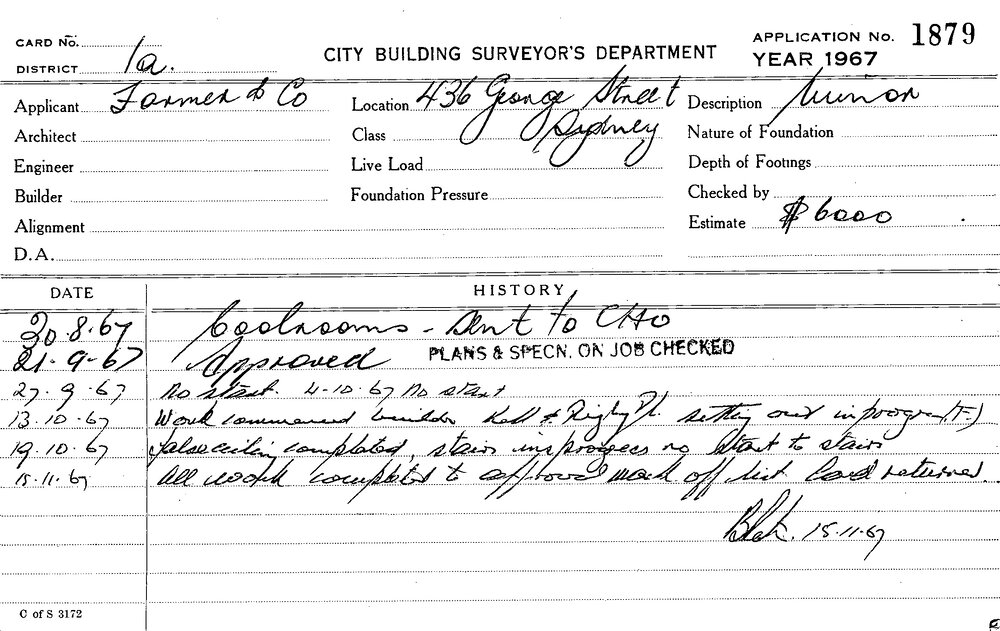 CARD No.
DISTRICT 1a.
CITY BUILDING SURVEYOR'S DEPARTMENT
APPLICATION No. 1879
YEAR 1967
Applicant Farmer & Co Location 436 George Street Description Minor
Architect Class Sydney Nature of Foundation
Engineer Live Load Depth of Footings
Builder Foundation Pressure Checked by
Alignment Estimate $ 6000
D.A.
DATE HISTORY
30.8.67 Coolrooms - Sent to CHO
21.9.67 Approved PLANS & SPECN. ON JOB CHECKED
27.9.67 No start. 4-10.67 No start
13.10.67 Work commenced builder & Rigby setting out in progress
19.10.67 false ceiling completed, stairs in progress no start to stairs
15.11.67 All work completed to approval mark off list Card returned.
15.11.67
C of S 3172